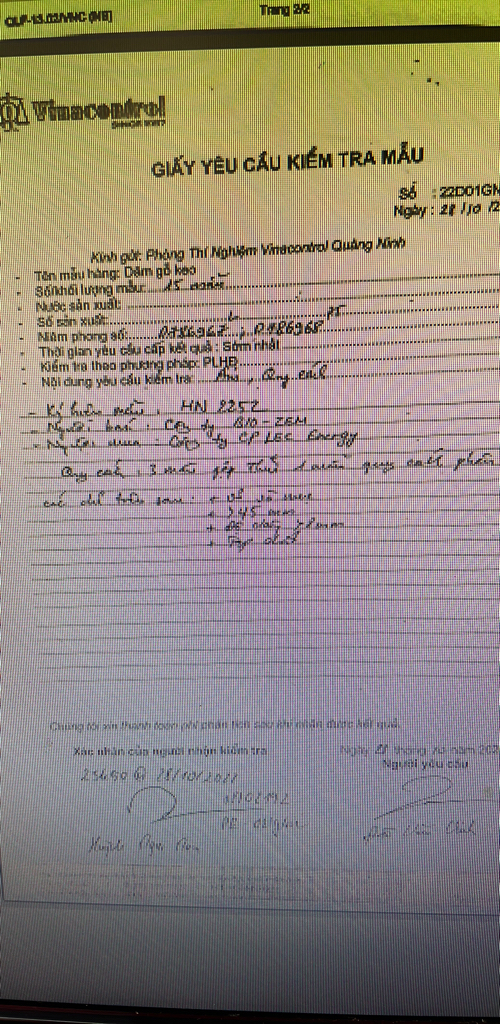 QLF-13.02/VNC (NB) Trang 2/2
Vinacontrol
SINCE 1957
GIẤY YÊU CẦU KIỂM TRA MẪU
Số : 22D01GN
Ngày : 28/10/2
Kính gửi: Phòng Thí Nghiệm Vinacontrol Quảng Ninh
- Tên mẫu hàng: Dăm gỗ keo
- Số/khối lượng mẫu: 15 mẫu
- Nước sản xuất:
- Số sản xuất:
- Niêm phong số: 0786967, 0786968
- Thời gian yêu cầu cấp kết quả : Sớm nhất
- Kiểm tra theo phương pháp: PLHĐ
- Nội dung yêu cầu kiểm tra: Ẩm, Quy cách
- Ký hiệu mẫu : HN 2252
- Người bán : Công ty BIO-ZEM
- Người mua : Công ty CP LEC Energy
Quy cách : 3 mẫu gộp thử 1 mẫu quy cách phân
các chỉ tiêu sau : + Vỏ và mục
+ >45 mm
+ mm
+ Tạp chất
Chúng tôi xin thanh toán phí phân tích sau khi nhận được kết quả.
Xác nhận của người nhận kiểm tra Ngày 28 tháng 10 năm 202
Người yêu cầu
23h50 @ 28/10/2022
Huỳnh Ngọc